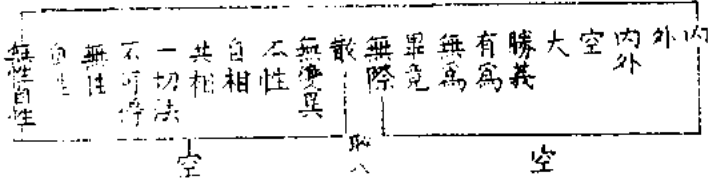 内
外
内外
空
大
勝義
有爲
無爲
畢竟
無際
散
無變異
本性
自相
共相
一切法
不可得
無性
自性
無性自性
空
空